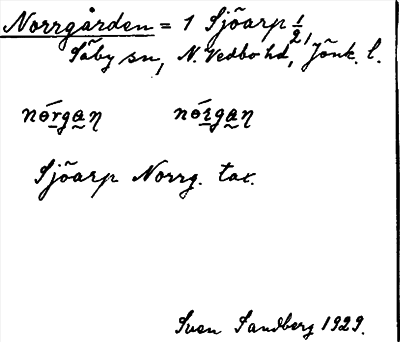 Norrgården = 1 Sjöarp 1/2,
Säby sn, N. Vedbo hd, Jönk. l.
nǿrgaꞑ nǿrgaꞑ
Sjöarp Norrg. tax.
Sven Sandberg 1929.